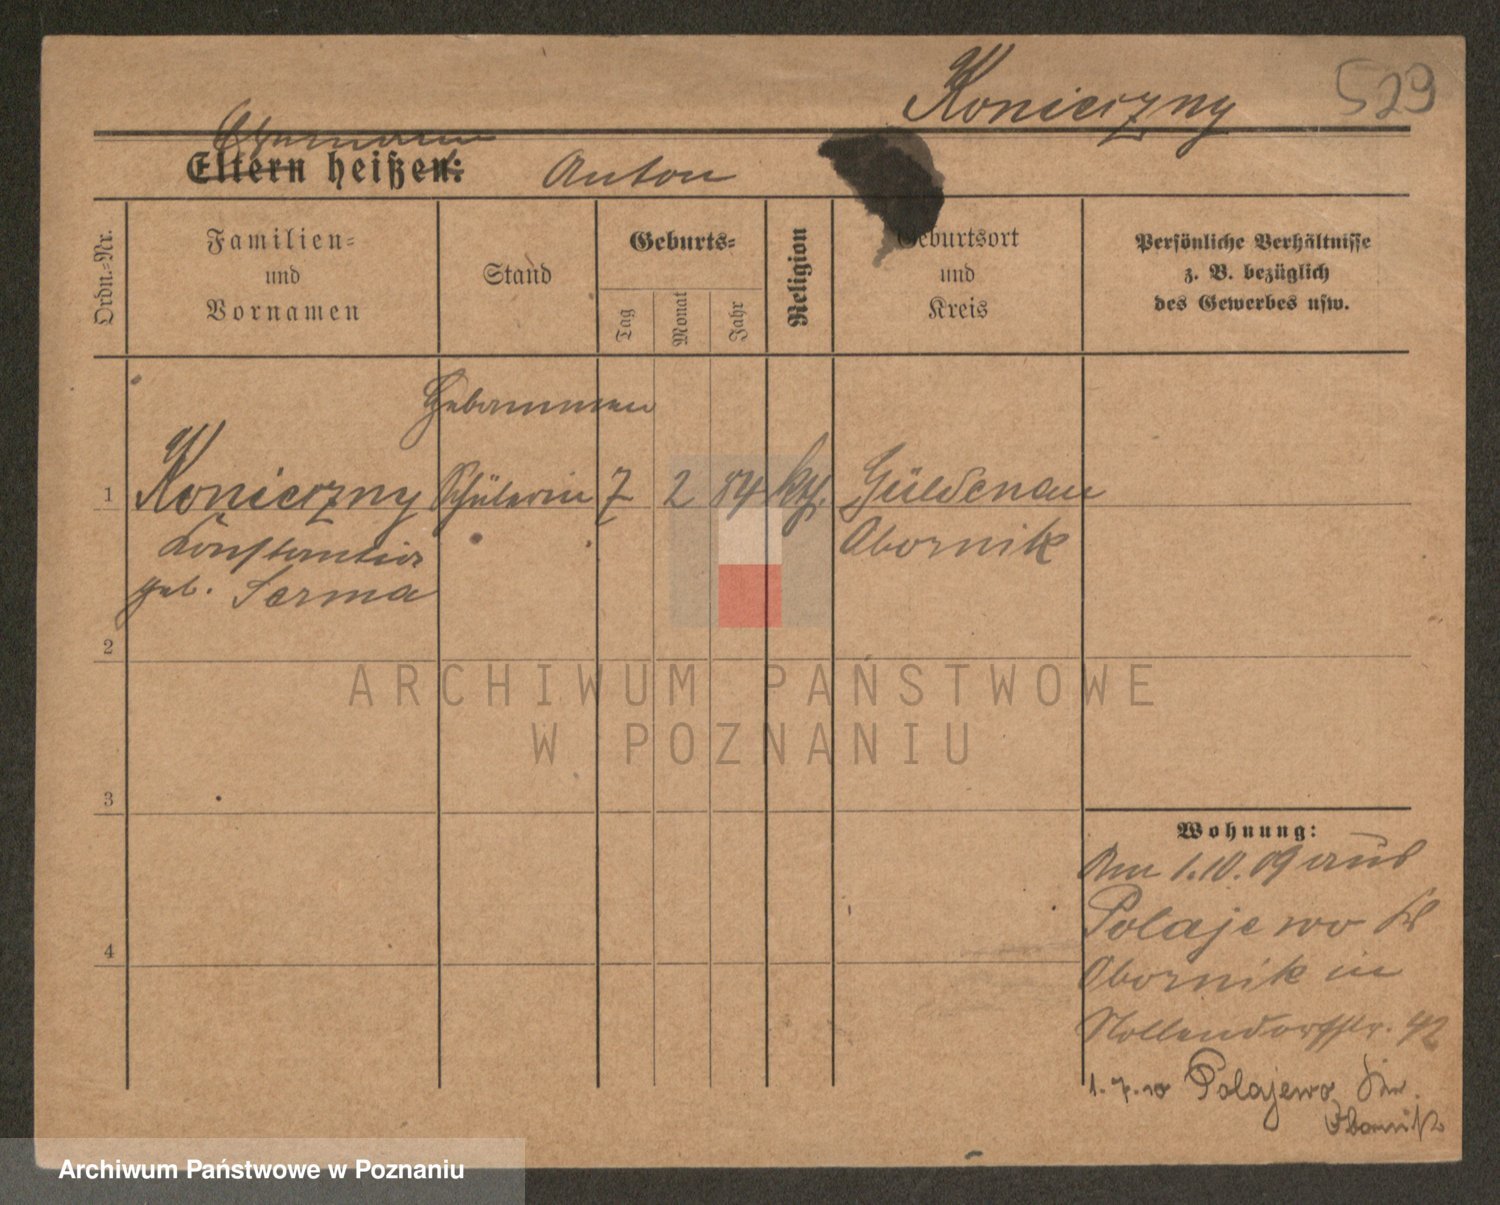 Konierzny
529
Ehemann
Eltern heißen: Anton
Ordn.-Nr.
Familien-
und
Vornamen
Stand
Geburts-
Tag
Monat
Jahr
Religion
Geburtsort
und
Kreis
Persönliche Verhältnisse
z. B. bezüglich
des Gewerbes usw.
Hebammen
1 Konierzny Schülerin 7 2 84 kth. Güldenau
Konstantia Obornik
geb. Serma
2
3
4
Wohnung:
Am 1.10.09 aus
Polajewo Kr
Obornik in
Nollendorfstr. 42
1.7.10 Polajewo Kr.
Obornik
ARCHIWUM PAŃSTWOWE
W POZNANIU
Archiwum Państwowe w Poznaniu